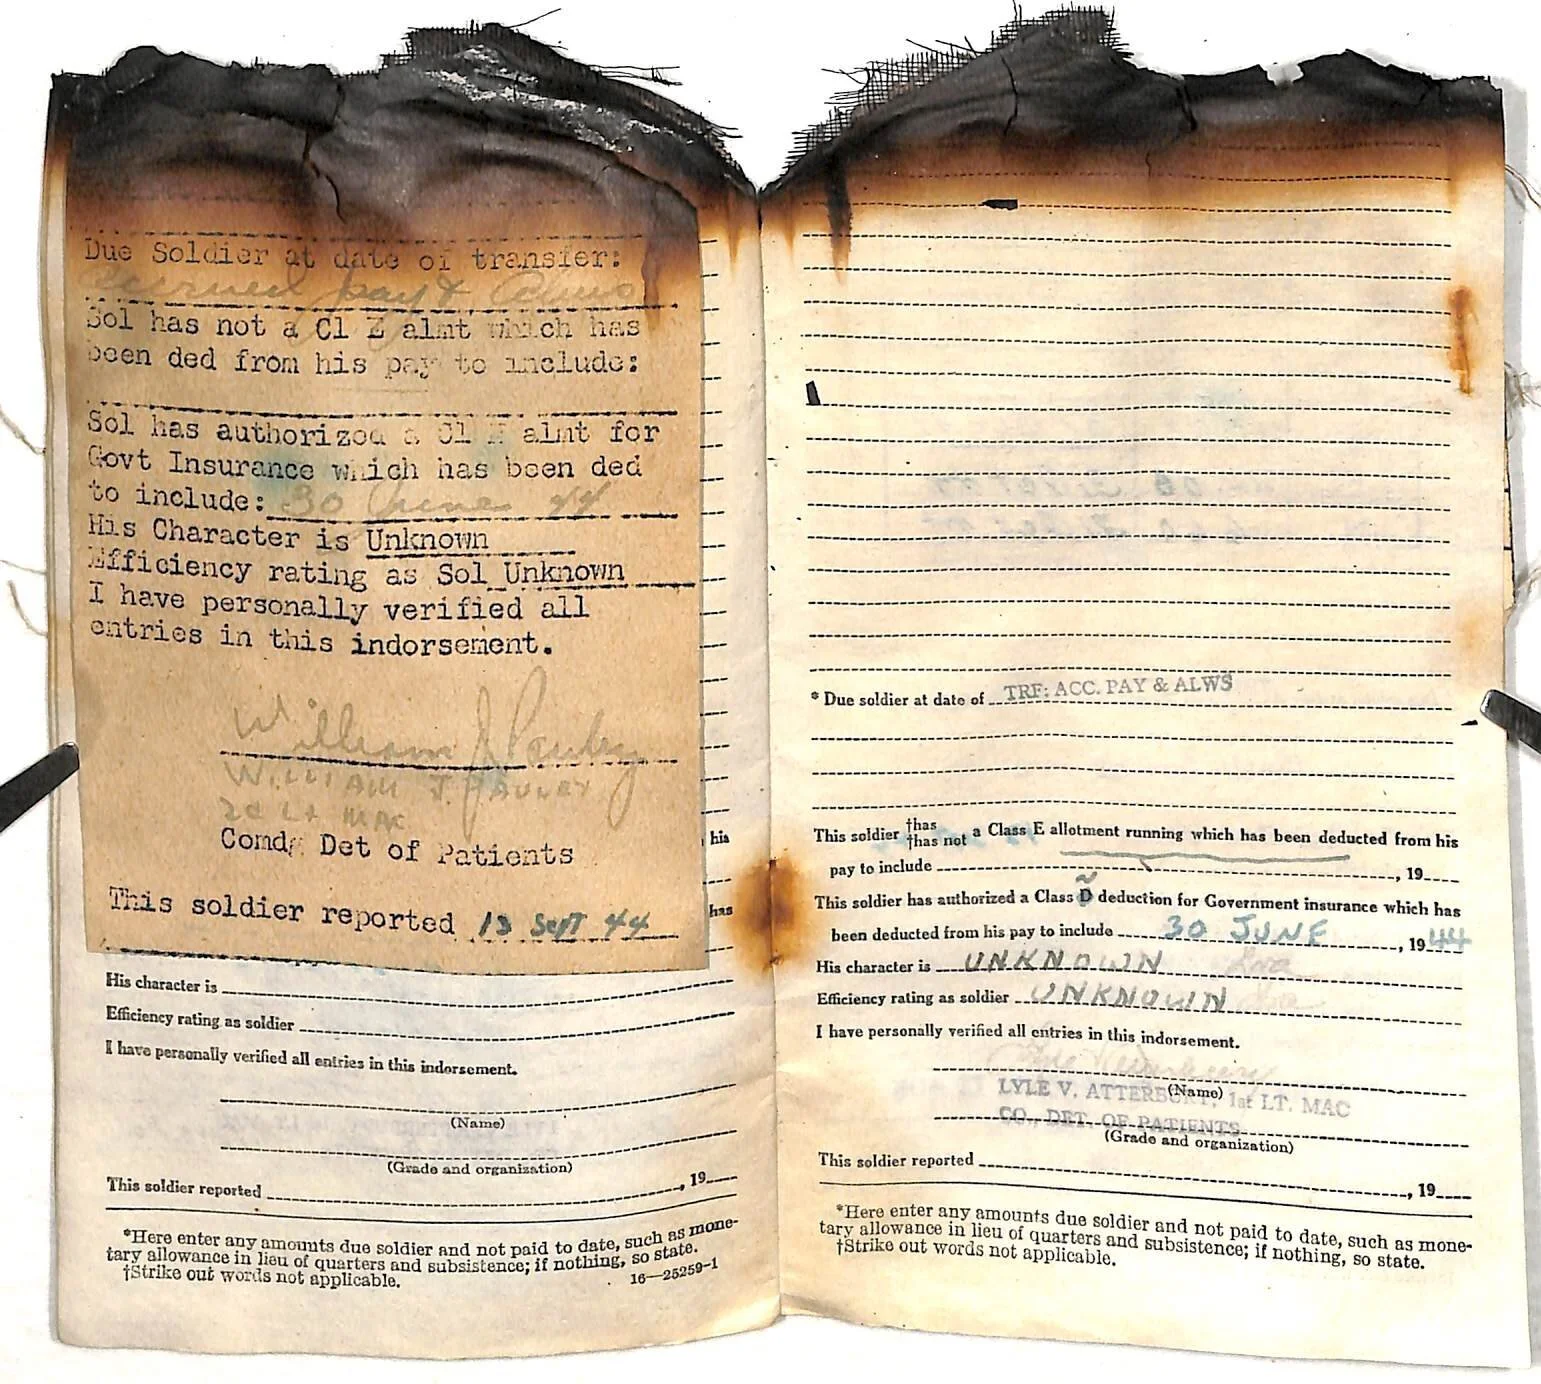 Due Soldier at date of transfer:
accrued pay & alws
Sol has not a Cl E almt which has
been ded from his pay to include:
Sol has authorized a Cl N almt for
Govt Insurance which has been ded
to include: 30 June 44
His Character is Unknown
Efficiency rating as Sol Unknown
I have personally verified all
entries in this indorsement.
William J Pauley
WILLIAM J. PAULEY
2d Lt MAC
Comdg Det of Patients
This soldier reported 13 Sept 44
his
has
His character is
Efficiency rating as soldier
I have personally verified all entries in this indorsement.
(Name)
(Grade and organization)
This soldier reported , 19
*Here enter any amounts due soldier and not paid to date, such as mone-
tary allowance in lieu of quarters and subsistence; if nothing, so state.
†Strike out words not applicable. 16—25259-1
* Due soldier at date of TRF: ACC. PAY & ALWS
This soldier †has †has not a Class E allotment running which has been deducted from his
pay to include , 19
This soldier has authorized a Class D deduction for Government insurance which has
been deducted from his pay to include 30 JUNE , 1944
His character is UNKNOWN
Efficiency rating as soldier UNKNOWN
I have personally verified all entries in this indorsement.
(Name)
LYLE V. ATTERBURY, 1st LT. MAC
CO., DET. OF PATIENTS
(Grade and organization)
This soldier reported , 19
*Here enter any amounts due soldier and not paid to date, such as mone-
tary allowance in lieu of quarters and subsistence; if nothing, so state.
†Strike out words not applicable.